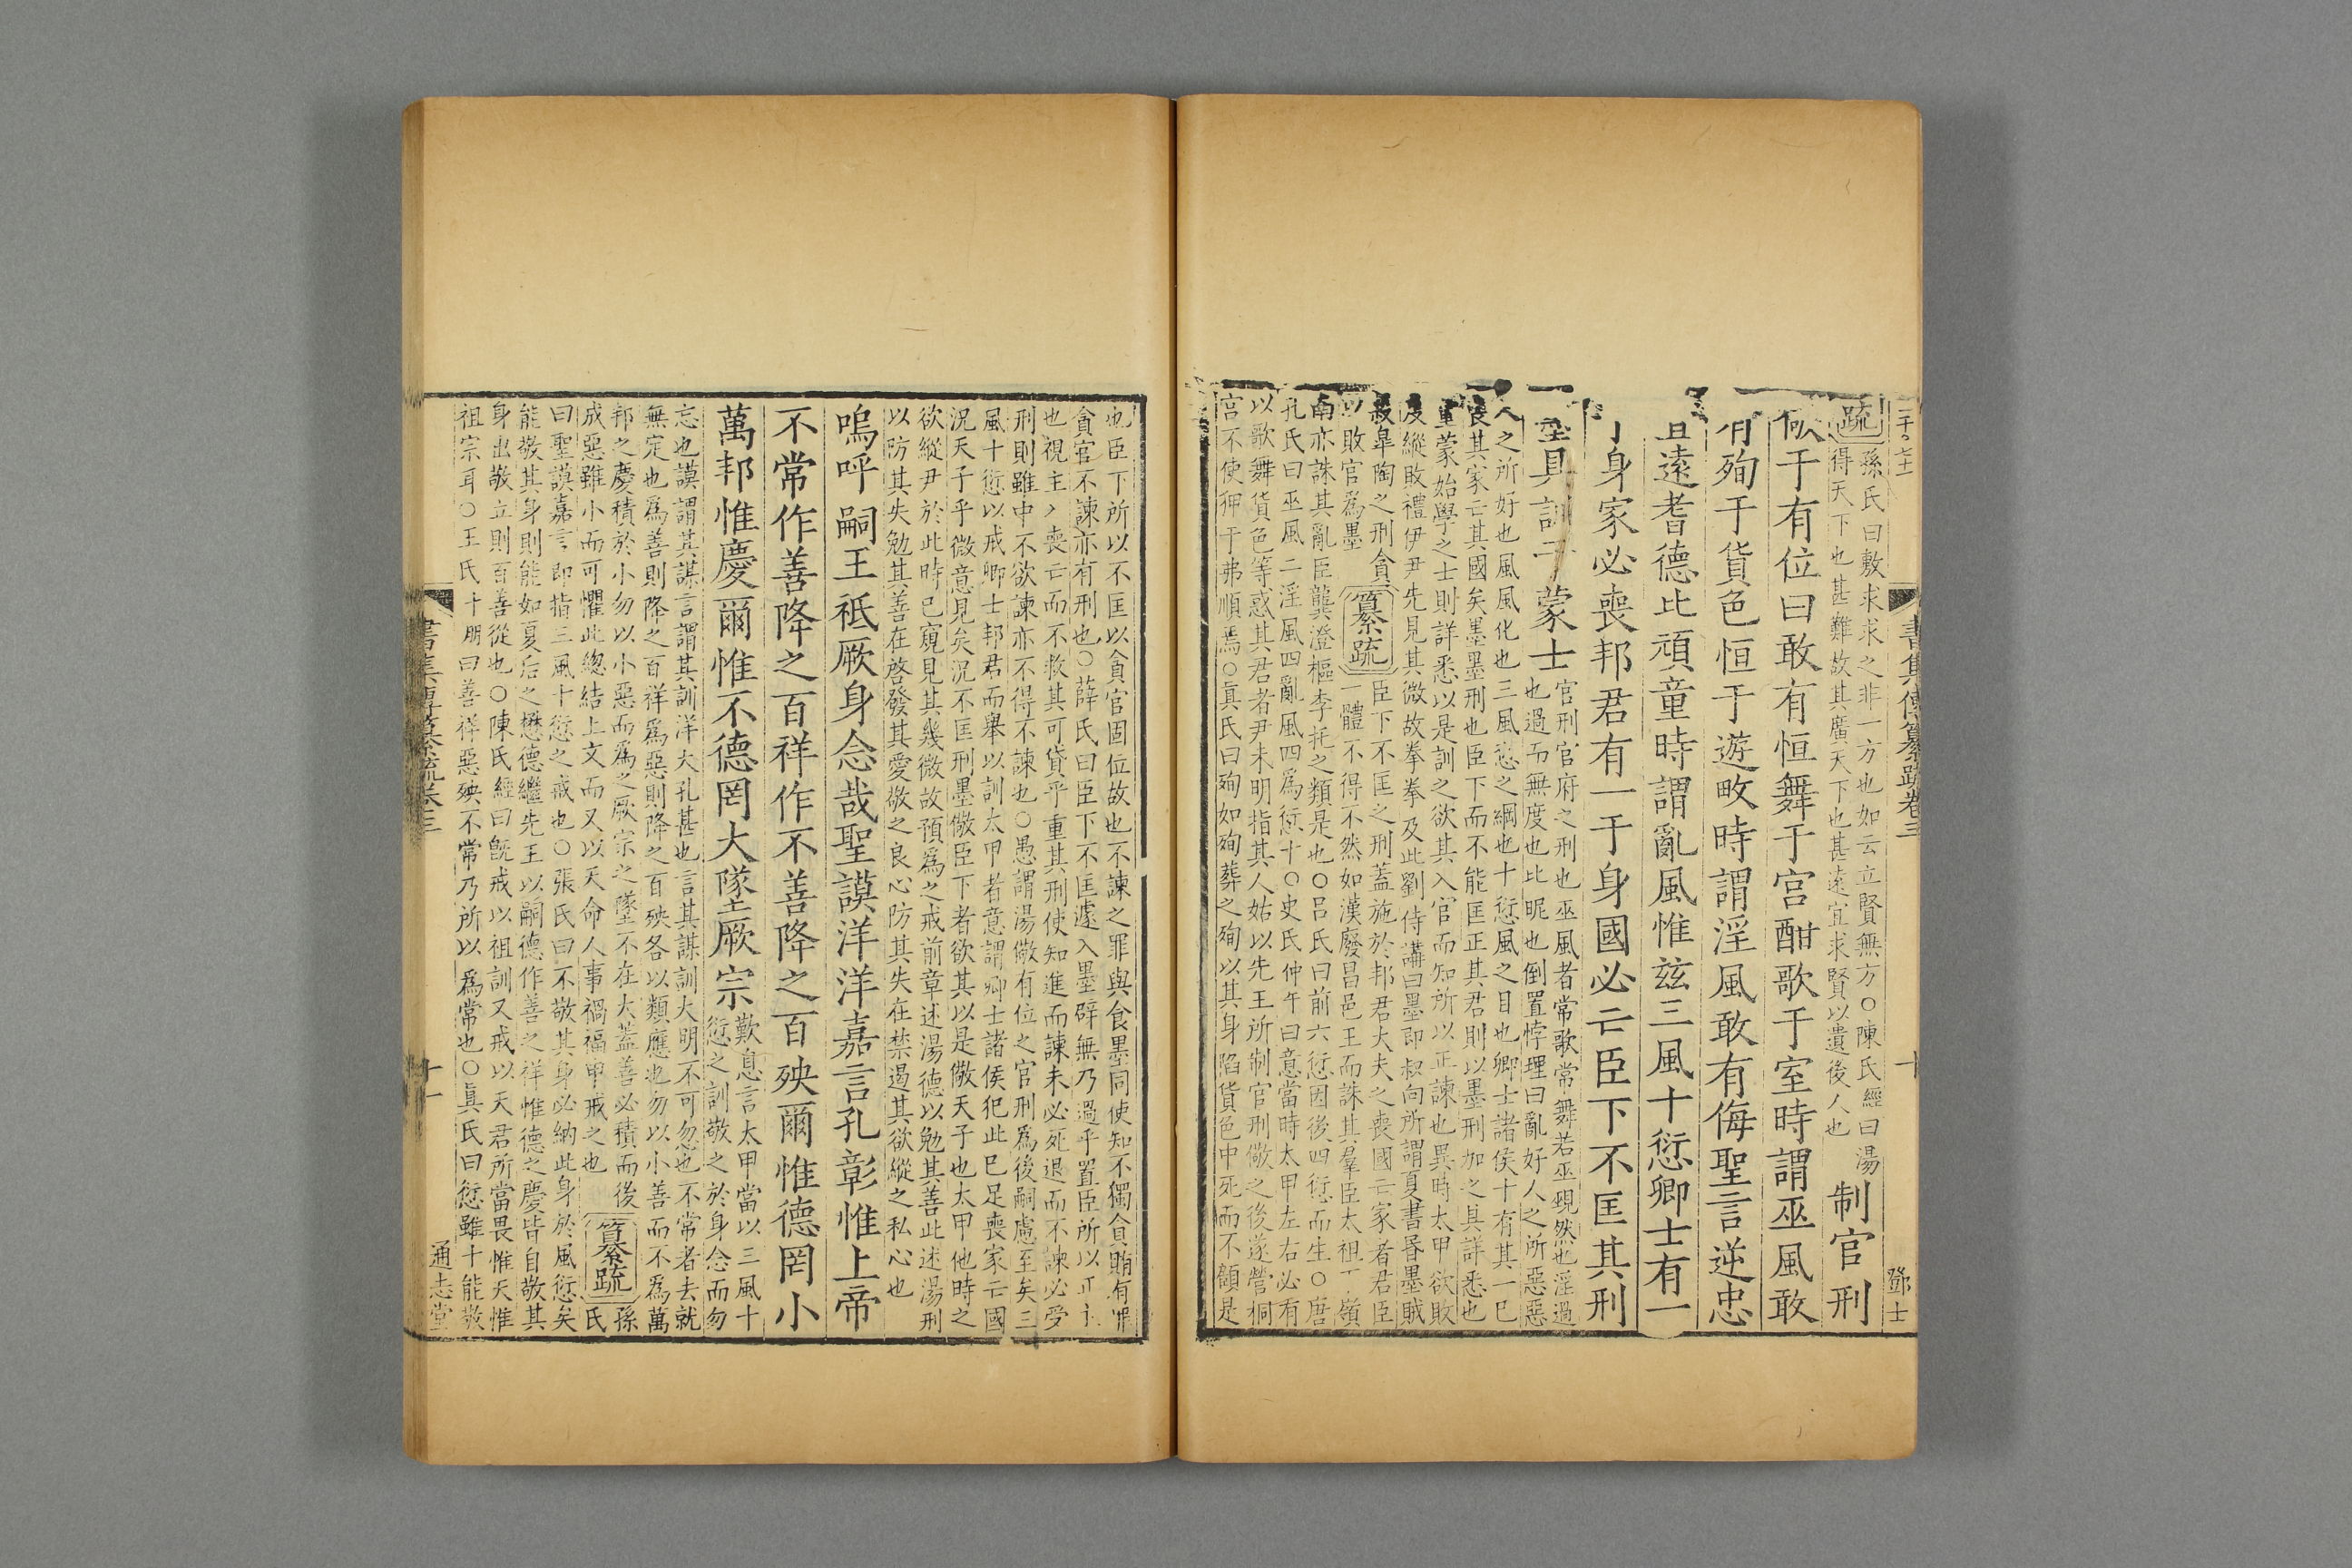 書集傳纂疏卷三
十
鄧士
疏
孫氏曰敷求求之非一方也如云立賢無方○陳氏經曰湯
得天下也甚難故其廣天下也甚遠宜求賢以遺後人也
制官刑
儆于有位曰敢有恒舞于宮酣歌于室時謂巫風敢
有殉于貨色恒于遊畋時謂淫風敢有侮聖言逆忠
直遠耆德比頑童時謂亂風惟兹三風十愆卿士有一
于身家必喪邦君有一于身國必亡臣下不匡其刑
墨具訓于蒙士
官刑官府之刑也巫風者常歌常舞若巫覡然也淫過
也過而無度也比昵也倒置悖理曰亂好人之所惡惡
人之所好也風風化也三風愆之綱也十愆風之目也卿士諸侯十有其一已
喪其家亡其國矣墨墨刑也臣下而不能匡正其君則以墨刑加之具詳悉也
童蒙始學之士則詳悉以是訓之欲其入官而知所以正諫也異時太甲欲敗
度縱敗禮伊尹先見其微故拳拳及此劉侍講曰墨即叔向所謂夏書昏墨賊
殺皐陶之刑貪
以敗官爲墨
纂疏
臣下不匡之刑蓋施於邦君大夫之喪國亡家者君臣
一體不得不然如漢廢昌邑王而誅其羣臣太祖下嶺
南亦誅其亂臣龔澄樞李托之類是也○呂氏曰前六愆因後四愆而生○唐
孔氏曰巫風二淫風四亂風四爲愆十○史氏仲午曰意當時太甲左右必有
以歌舞貨色等惑其君者尹未明指其人姑以先王所制官刑儆之後遂營桐
宮不使狎于弗順焉○眞氏曰殉如殉葬之殉以其身陷貨色中死而不顧是
也臣下所以不匡以貪官固位故也不諫之罪與貪墨同使知不獨貪賄有罪
貪官不諫亦有刑也○薛氏曰臣下不匡遽入墨辟無乃過乎置臣所以正主
也視主之喪亡而不救其可貸乎重其刑使知進而諫未必死退而不諫必受
刑則雖中不欲諫亦不得不諫也○愚謂湯儆有位之官刑爲後嗣慮至矣三
風十愆以戒卿士邦君而舉以訓太甲者意謂卿士諸侯犯此已足喪家亡國
況天子乎微意見矣況不匡刑墨儆臣下者欲其以是儆天子也太甲他時之
欲縱尹於此時已窺見其幾微故預爲之戒前章述湯德以勉其善此述湯刑
以防其失勉其善在啓發其愛敬之良心防其失在禁遏其欲縱之私心也
嗚呼嗣王祗厥身念哉聖謨洋洋嘉言孔彰惟上帝
不常作善降之百祥作不善降之百殃爾惟德罔小
萬邦惟慶爾惟不德罔大墜厥宗
歎息言太甲當以三風十
愆之訓敬之於身念而勿
忘也謨謂其謀言謂其訓洋大孔甚也言其謀訓大明不可忽也不常者去就
無定也爲善則降之百祥爲惡則降之百殃各以類應也勿以小善而不爲萬
邦之慶積於小勿以小惡而爲之厥宗之墜不在大蓋善必積而後
成惡雖小而可懼此總結上文而又以天命人事禍福申戒之也
纂疏
孫
氏
曰聖謨嘉言即指三風十愆之戒也○張氏曰不敬其身必納此身於風愆矣
能敬其身則能如夏后之懋德繼先王以嗣德作善之祥惟德之慶皆自敬其
身出敬立則百善從也○陳氏經曰旣戒以祖訓又戒以天君所當畏惟天惟
祖宗耳○王氏十朋曰善祥惡殃不常乃所以爲常也○眞氏曰愆雖十能敬
書集傳纂疏卷三
十一
通志堂